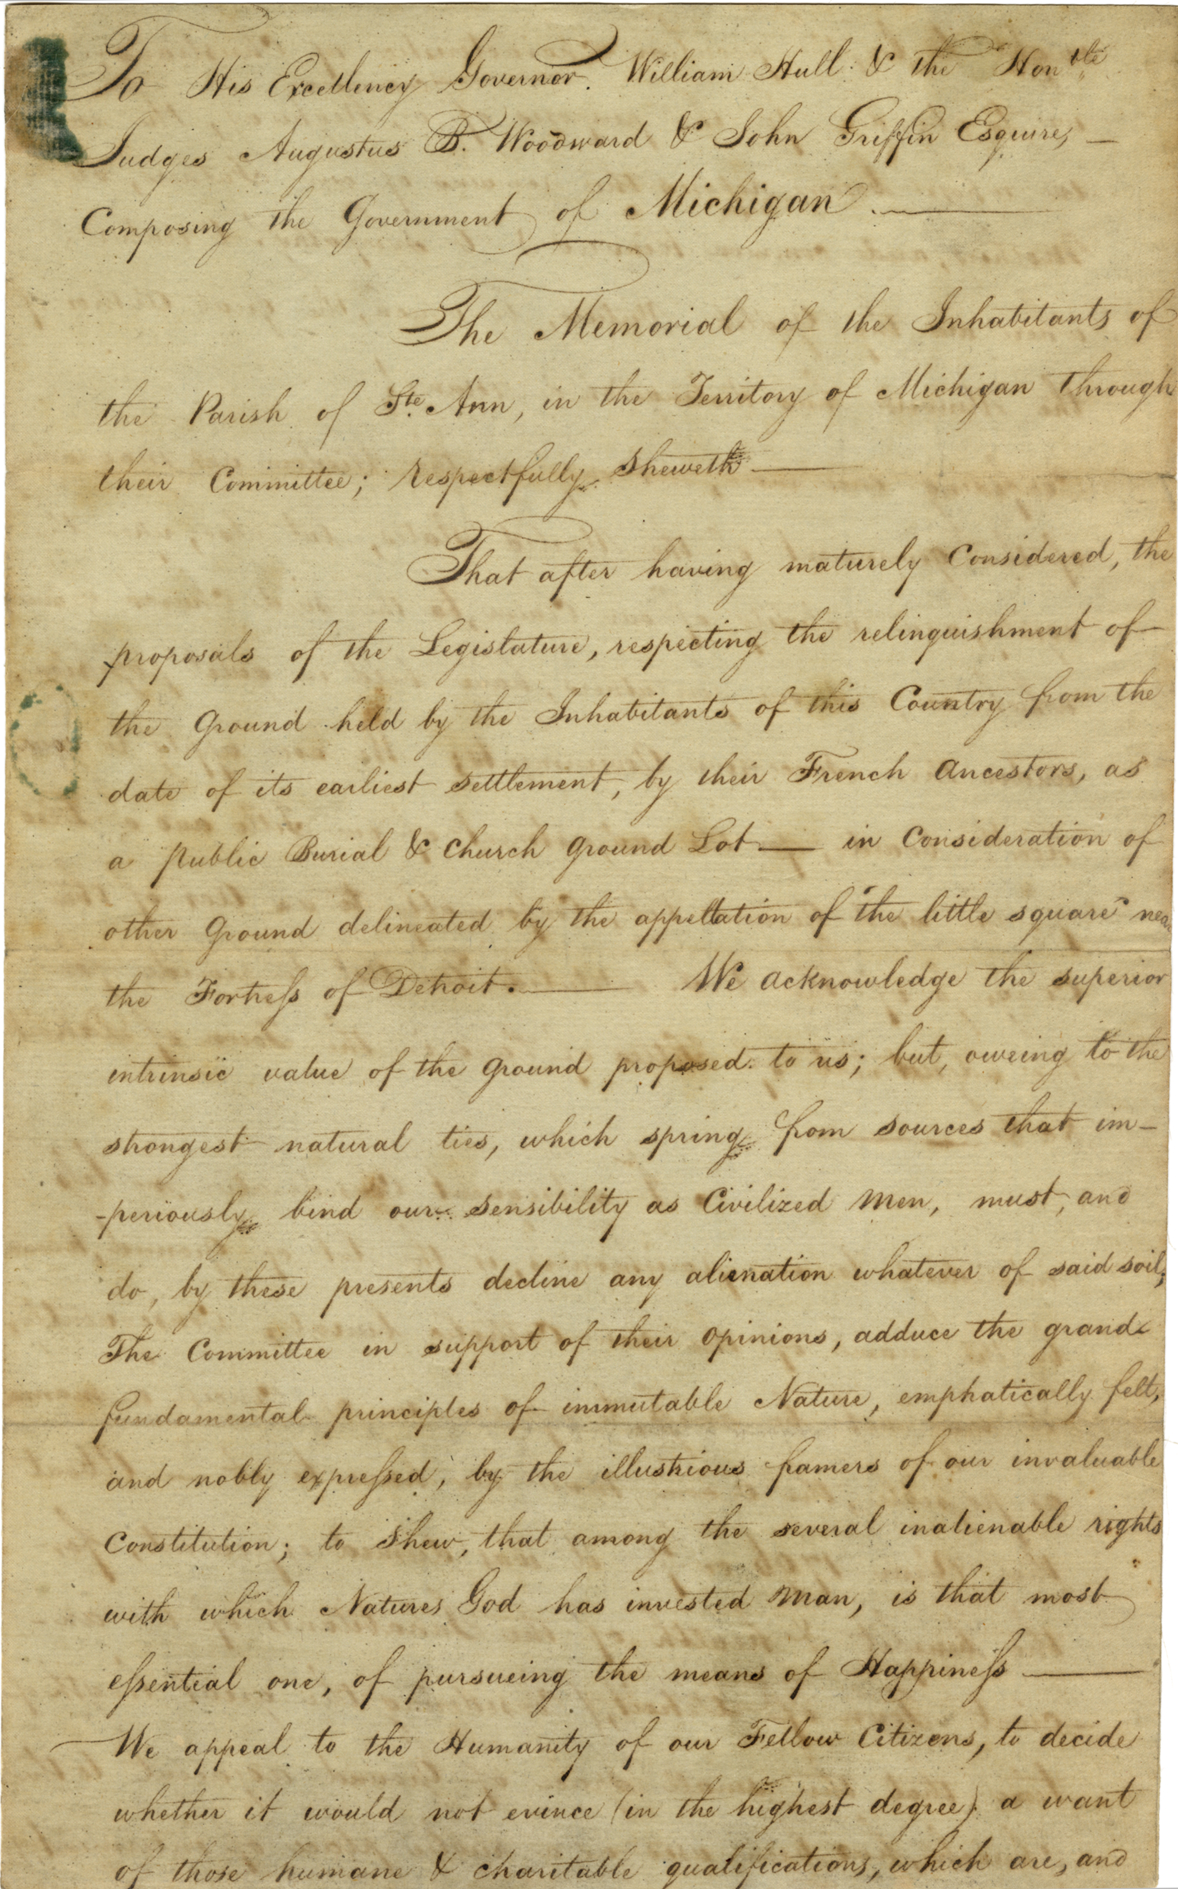 To His Excellency Governor William Hull & the Honble
Judges Augustus B. Woodward & John Griffin Esquires, —
Composing the Government of Michigan. —
The Memorial of the Inhabitants of
the Parish of Ste. Ann, in the Territory of Michigan through
their Committee; respectfully sheweth —
That after having maturely Considered, the
proposals of the Legislature, respecting the relinquishment of
the Ground held by the Inhabitants of this Country from the
date of its earliest settlement, by their French Ancestors, as
a public Burial & Church Ground Lot — in Consideration of
other Ground delineated by the appellation of "the little square" near
the Fortress of Detroit. — We acknowledge the superior
intrinsic value of the Ground proposed to us; but, oweing to the
strongest natural ties, which spring from sources that im-
-periously bind our sensibility as Civilized Men, must, and
do, by these presents decline any alienation whatever of said soil;
The Committee in support of their Opinions, adduce the grand
fundamental principles of immutable Nature, emphatically felt,
and nobly expressed, by the illustrious framers of our invaluable
Constitution; to shew, that among the several inalienable rights
with which Natures God has invested Man, is that most
essential one, of pursueing the means of Happiness —
We appeal to the Humanity of our Fellow Citizens, to decide
whether it would not evince (in the highest degree) a want
of those humane & charitable qualifications, which are, and